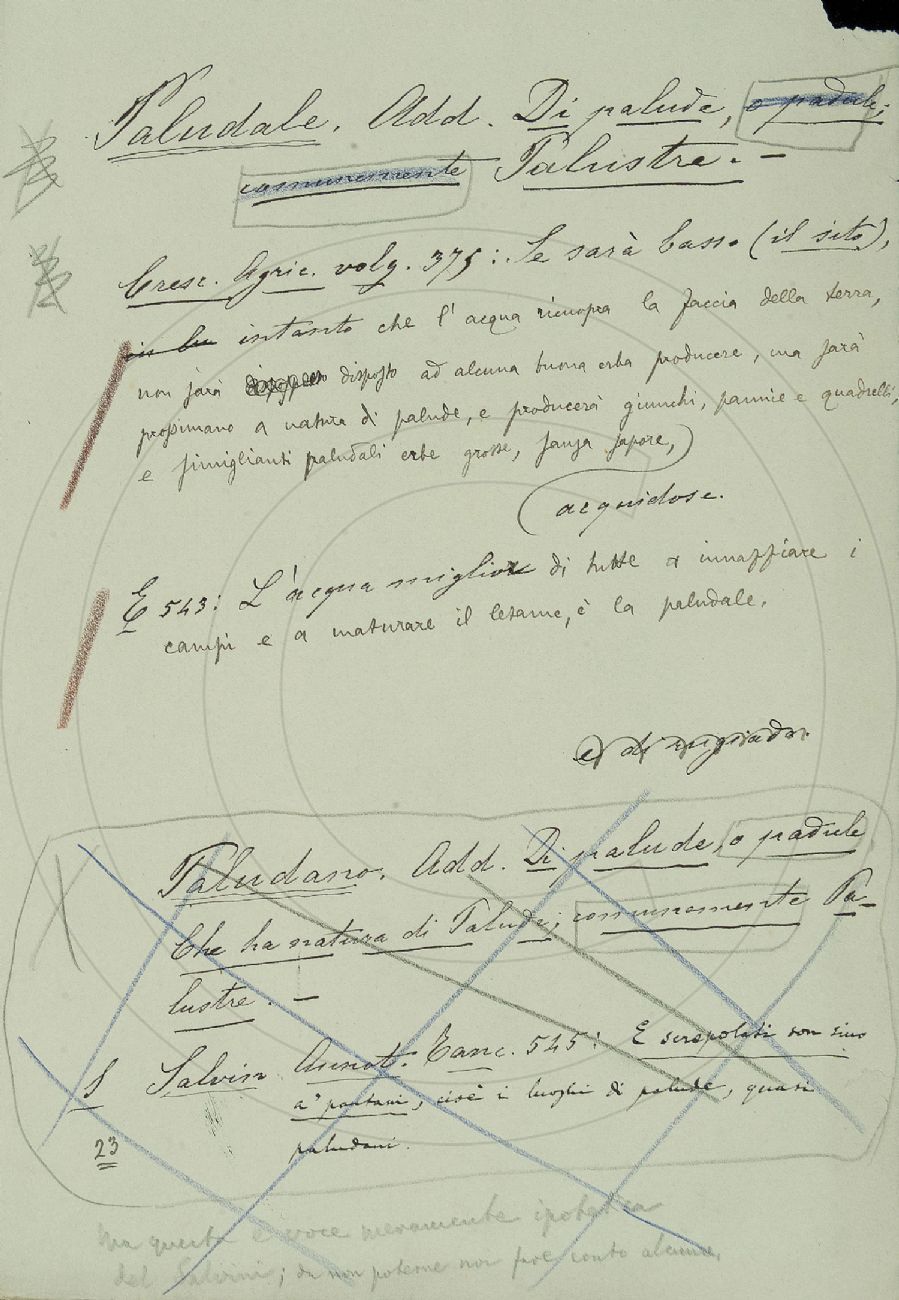 Paludale. Add. Di palude, o padule;
comunemente Palustre. —
Cresc. Agric. volg. 375: Se sarà basso (il sito),
in bu intanto che l'acqua ricuopra la faccia della terra,
non sarà disposto ad alcuna buona erba producere, ma sarà
prossimano a natura di palude, e producerà giunchi, pannie e quadrelli,
e simiglianti paludali erbe grosse, sanza sapore,
acquidose.
E 543: L'acqua migliore di tutte a innaffiare i
campi e a maturare il letame, è la paludale.
e di rugiada.
Paludano. Add. Di palude, o padule
Che ha natura di Palude; comunemente Pa-
lustre. —
S Salvin. Annot. Tanc. 545: E screpolati son sino
a' pantani, cioè i luoghi di palude, quasi
23 paludani.
Ma questa è voce meramente ipotetica
del Salvini; da non poterne far conto alcuno.